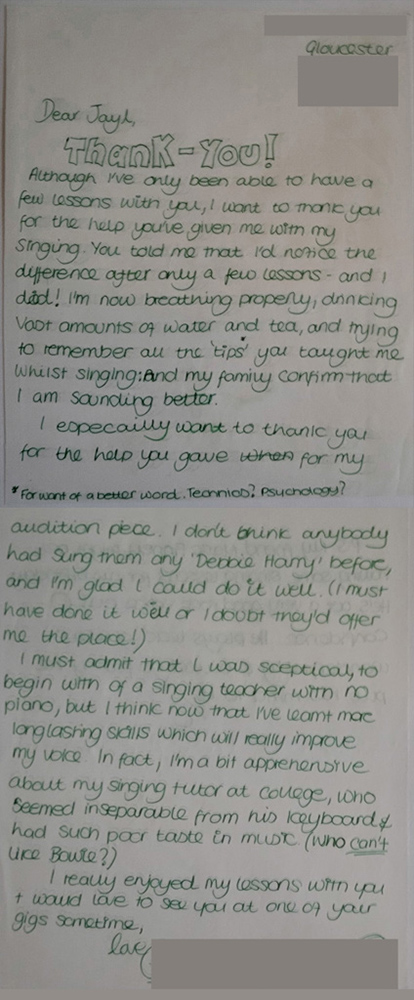 Gloucester
Dear Jayl,
THANK-YOU!
Although I've only been able to have a
few lessons with you, I want to thank you
for the help you've given me with my
singing. You told me that I'd notice the
difference after only a few lessons - and I
did! I'm now breathing properly, drinking
vast amounts of water and tea, and trying
to remember all the 'tips'* you taught me
whilst singing. And my family confirm that
I am sounding better.
I especailly want to thank you
for the help you gave when for my
*For want of a better word. Psychology?
audition piece. I don't think anybody
had sung them any 'Debbie Harry' before,
and I'm glad I could do it well. (I must
have done it well or I doubt they'd offer
me the place!)
I must admit that I was sceptical, to
begin with of a singing teacher with no
piano, but I think now that I've learnt more
longlasting skills which will really improve
my voice. In fact, I'm a bit apprehensive
about my singing tutor at college, who
seemed inseparable from his keyboard &
had such poor taste in music. (Who can't
like Bowie?)
I really enjoyed my lessons with you
+ would love to see you at one of your
gigs sometime,
love